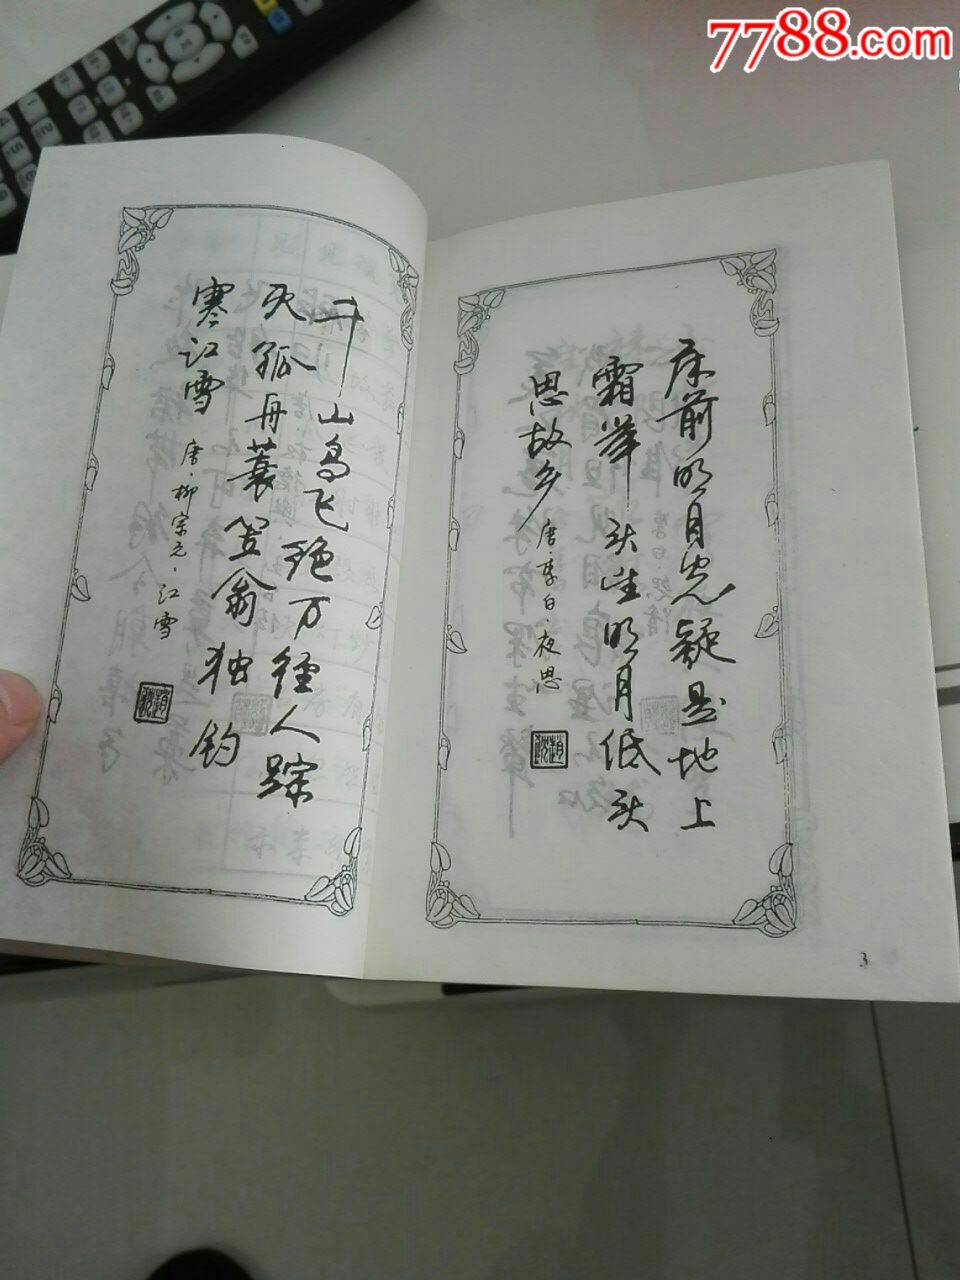 7788.com
千山鸟飞绝万径人踪
灭孤舟蓑笠翁独钓
寒江雪 唐·柳宗元·江雪
床前明月光疑是地上
霜举头望明月低头
思故乡 唐·李白·夜思
3